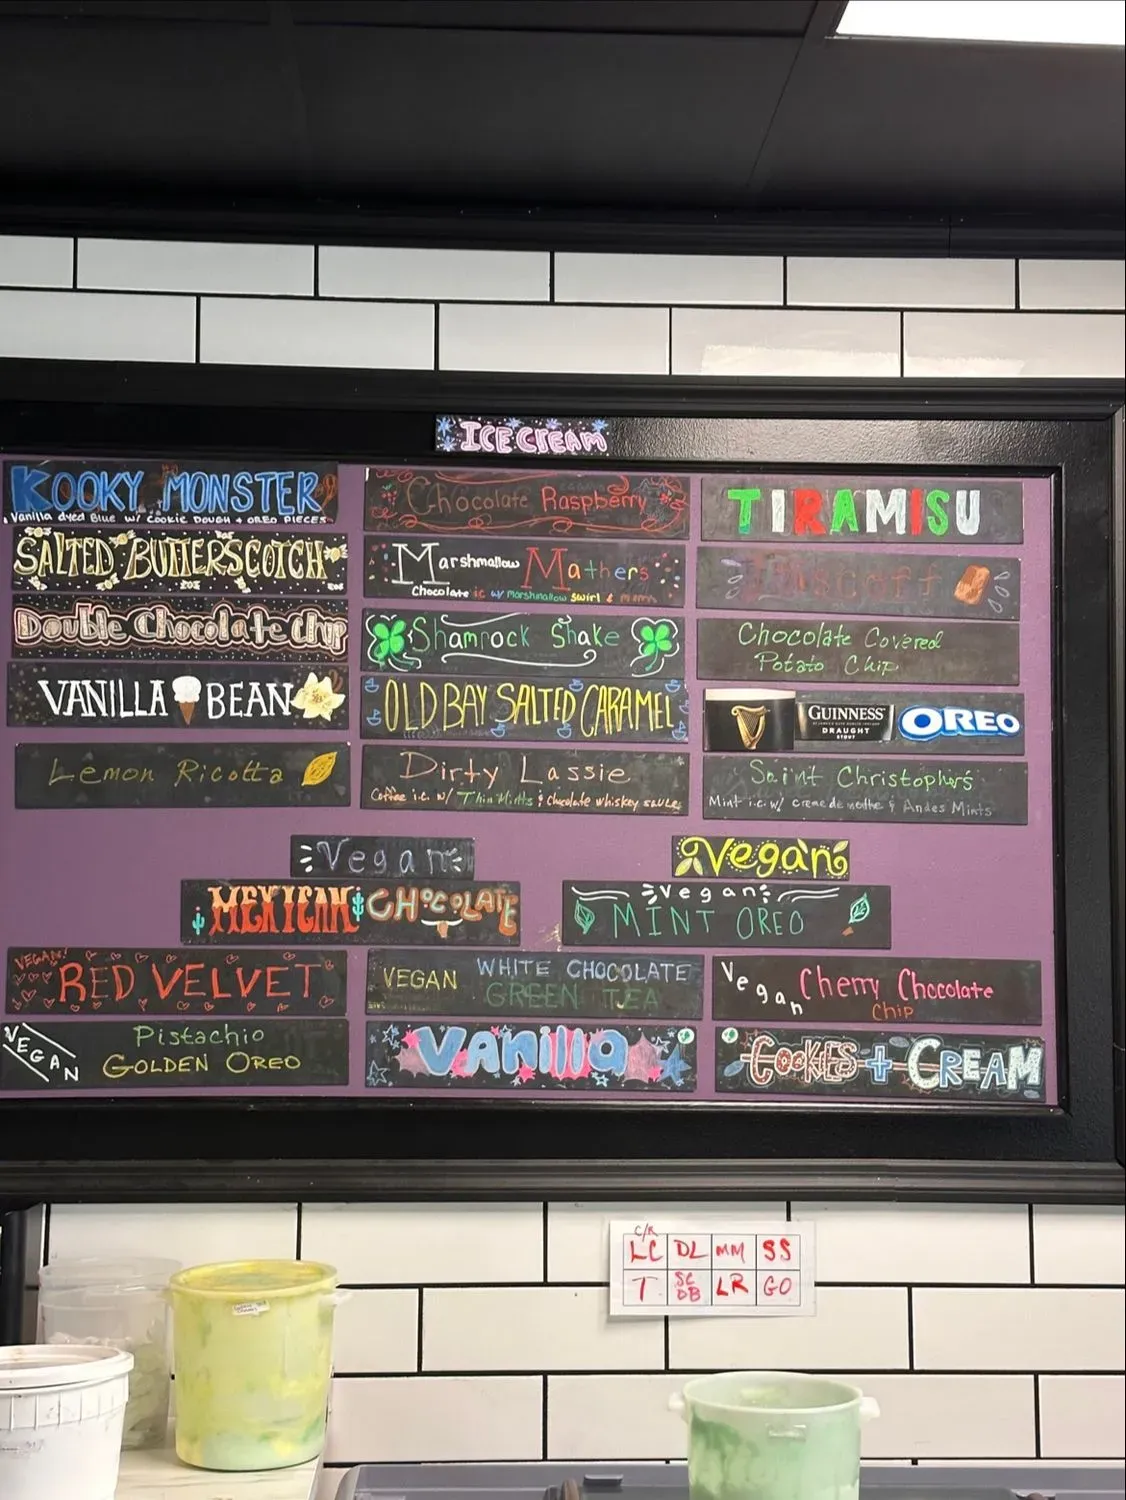 ICE CREAM
KOOKY MONSTER
Vanilla dyed Blue w/ Cookie Dough + OREO PIECES
SALTED BUTTERSCOTCH
Double Chocolate Chip
VANILLA BEAN
Lemon Ricotta
Chocolate Raspberry
Marshmallow Mathers
Chocolate ic w/ marshmallow swirl & m&ms
Shamrock Shake
OLD BAY SALTED CARAMEL
Dirty Lassie
Coffee i.c. w/ Thin Mints & chocolate whiskey sauce
TIRAMISU
Chocolate Covered
Potato Chip
GUINNESS
DRAUGHT
STOUT
OREO
Saint Christopher's
Mint i.c. w/ creme de menthe & Andes Mints
Vegan
MEXICAN CHOCOLATE
Vegan
Vegan
MINT OREO
VEGAN!
RED VELVET
VEGAN WHITE CHOCOLATE
GREEN TEA
Vegan Cherry Chocolate
Chip
VEGAN
Pistachio
GOLDEN OREO
Vanilla
COOKIES + CREAM
C/R
LC DL MM SS
T SC DB LR GO